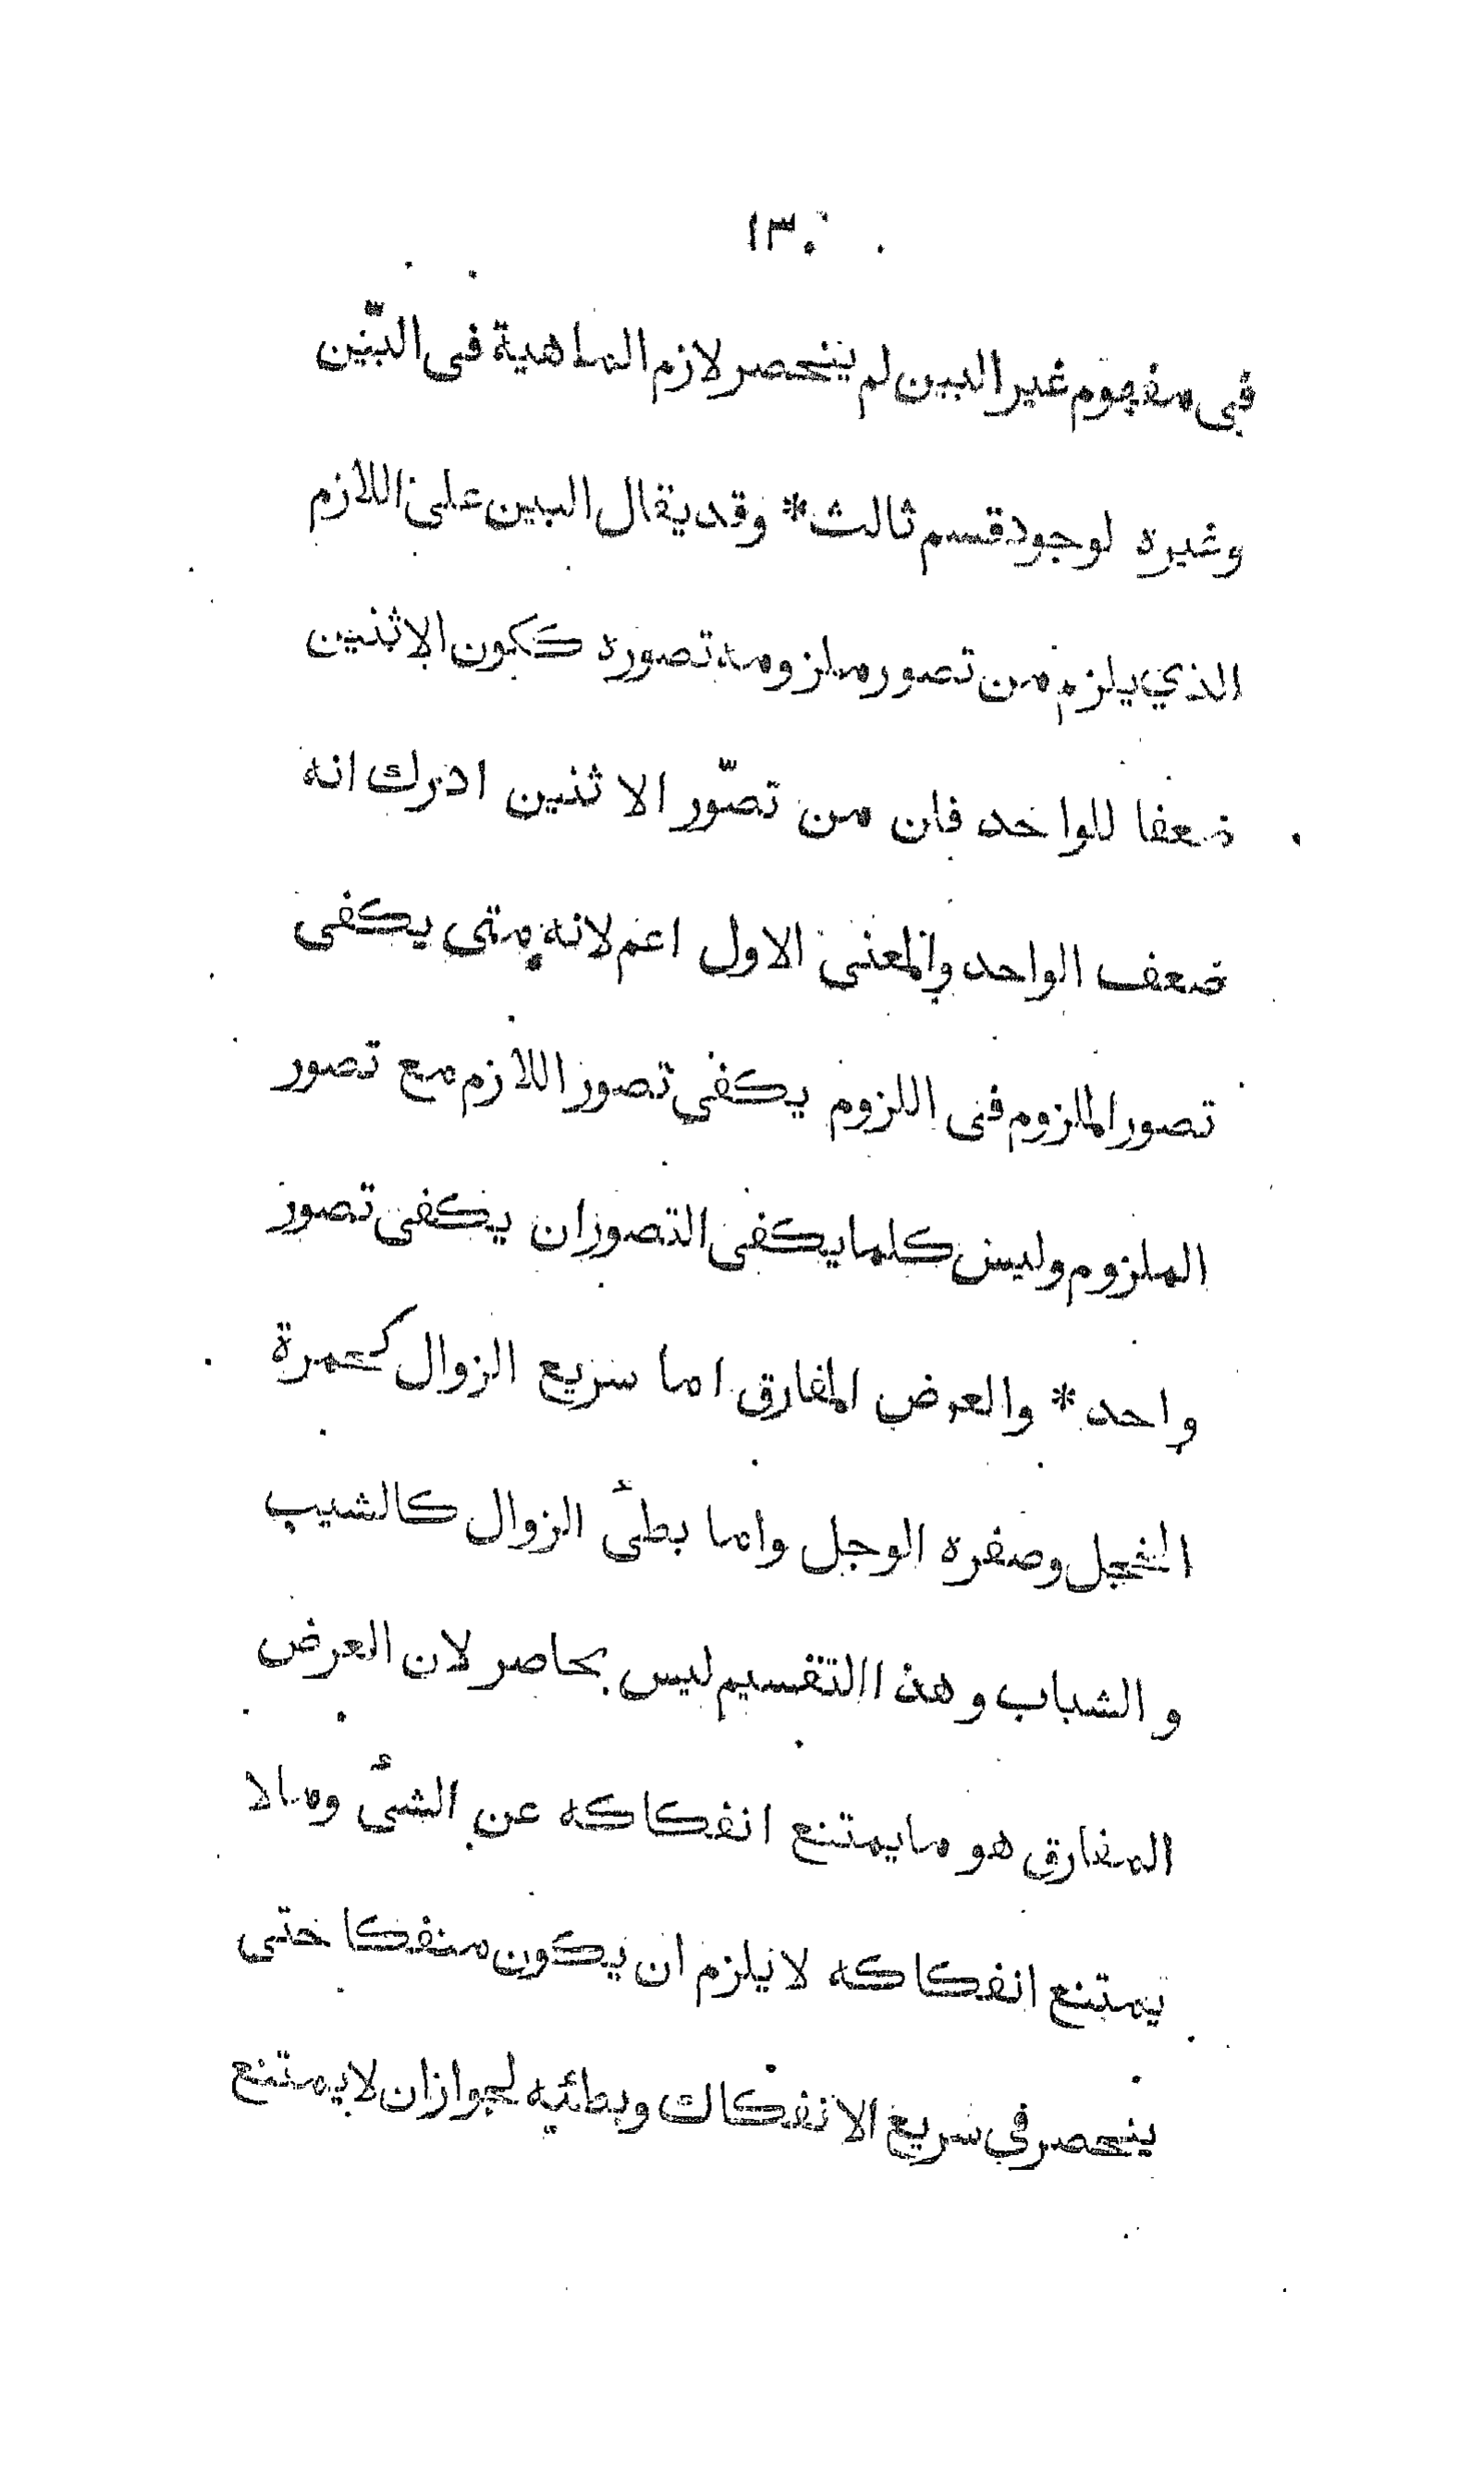 ١٣٠
فى مفهوم غير البين لم ينحصر لازم الماهية فى البيّن
وغيره لوجود قسم ثالث * وقد يقال البين على اللازم
الذي يلزم من تصور ملزومه تصوره ككون الاثنين
ضعفا للواحد فان من تصّور الاثنين ادرك انه
ضعف الواحد والمعنى الاول اعم لانه متى يكفى
تصور الملزوم فى اللزوم يكفى تصور اللازم مع تصور
الملزوم وليس كلما يكفى التصوران يكفى تصور
واحد * والعرض المفارق اما سريع الزوال كحمرة
الخجل وصفرة الوجل واما بطئ الزوال كالشيب
و الشباب وهذا التقسيم ليس بحاصر لان العرض
المفارق هو مايمتنع انفكاكه عن الشئ ومالا
يمتنع انفكاكه لايلزم ان يكون منفكا حتى
ينحصر في سريع الانفكاك وبطئيه لجوازان لايمتنع